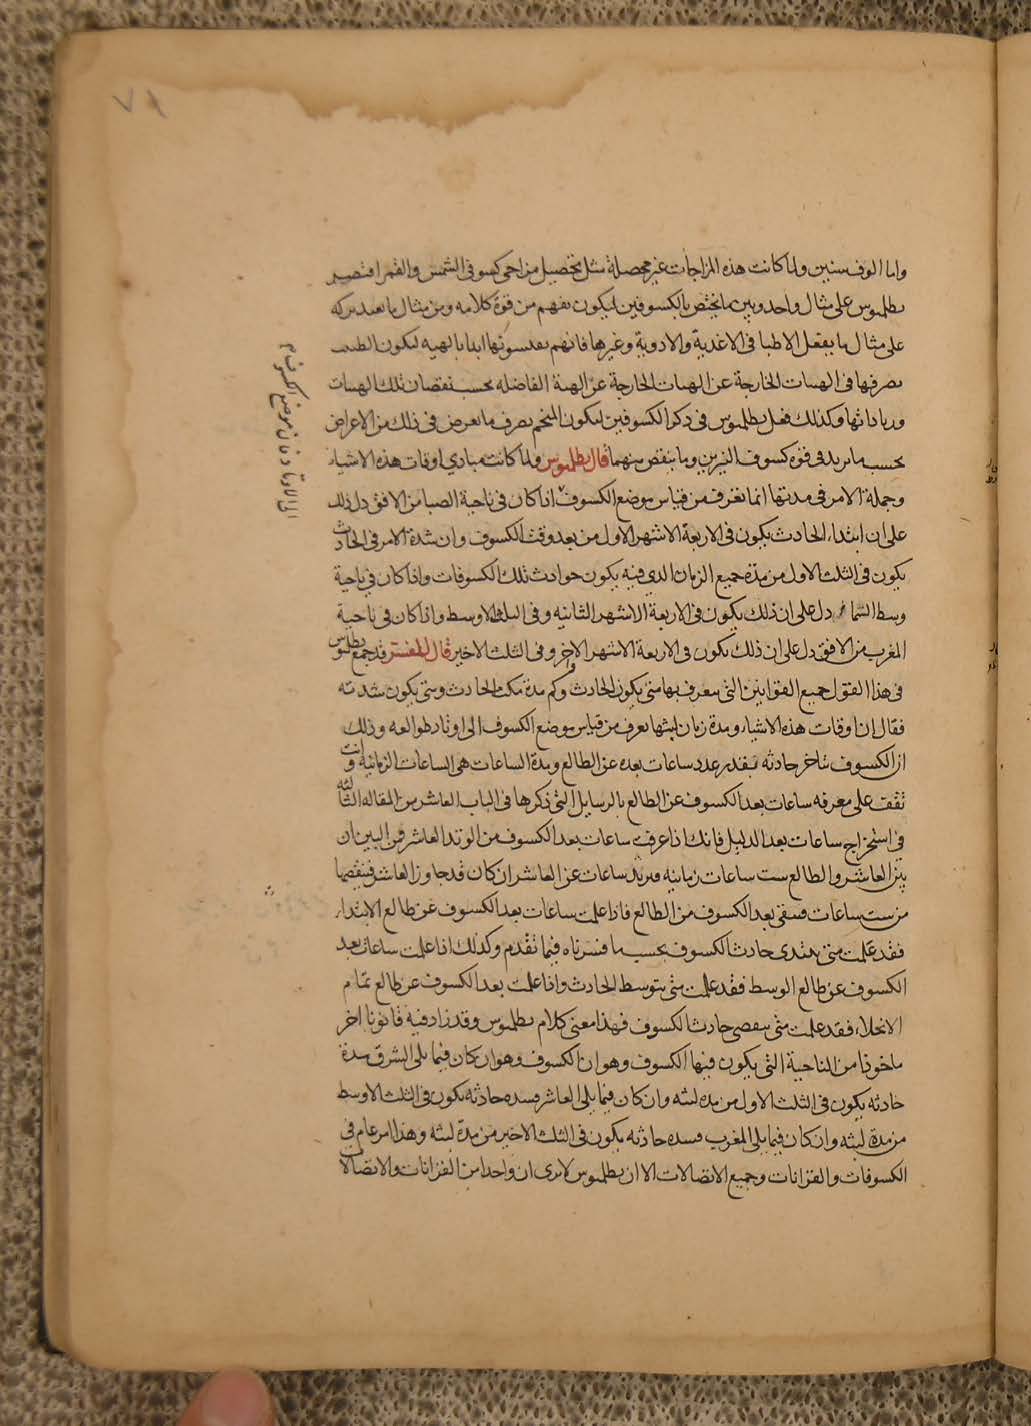 ٧١
واما الوف سنين ولما كانت هذه المزاجات غير محصلة مثل تحصيل مزاجي كسوفي الشمس والقمر اقتصر
بطلميوس على مثال واحد وبين ما يختص بالكسوفين ليكون تفهم من قوة كلامه ومن مثال ما بعد تركه
على مثال ما يفعل الاطبا في الاغدية والادوية وغيرها فانهم ابدا بالهيه ليكون الطبيب
تصرفها في الهيات الخارجة عن الهيات الخارجة عن الهية الفاضله بحسب نقصان تلك الهيات
وزياداتها وكذلك فعل بطلميوس في ذكر الكسوفين ليكون المنجم يعرف ما يعرض في ذلك من الاعراض
بحسب ما يريد في قوه كسوف النيرين وما ينقص منهما قال بطلميوس ولما كانت مبادي اوقات هذه الاشيا
وجملة الامر في مدتها انما تعرف من قياس موضع الكسوف اذا كان في ناحية الصبا من الافق دل ذلك
على ان ابتداء الحادث يكون في الاربعة الاشهر الاول من بعد وقت الكسوف وان شدة الامر في الحادث
يكون في الثلث الاول من مدة جميع الزمان الدي فيه يكون حوادث تلك الكسوفات واذا كان في ناحية
وسط السما دل على ان ذلك يكون في الاربعة الاشهر الثانيه وفي الثلث الاوسط واذا كان في ناحية
المغرب من الافق دل على ان ذلك يكون في الاربعة الاشهر الاخر وفي الثلث الاخير قال المفسر قد جمع بطلميوس
في هذا القول جميع القوانين التي يعرف بها متى يكون الحادث وكم مدة مكث الحادث ومتى يكون شدته
فقال ان اوقات هذه الاشياء ومدة زمان لبثها يعرف من قياس موضع الكسوف الى اوتاد طوالعه وذلك
ان الكسوف تتاخر حادثه بقدر عدد ساعات بعده عن الطالع وبدة الساعات هي الساعات الزمانية وانت
تقف على معرفه ساعات بعد الكسوف عن الطالع بالرسايل التي ذكرها في الباب العاشر من المقاله الثالثه
في استخراج ساعات بعد الدليل فانك اذا عرفت ساعات بعد الكسوف من الوتد العاشر فمن البين ان
بين العاشر والطالع ست ساعات زمانية فتريد ساعات عن العاشر ان كان قد جاوز العاشر فتنقصها
من ست ساعات فيبقى بعد الكسوف من الطالع فاذا علمت ساعات بعد الكسوف عن طالع الابتداء
فقد علمت متى يبتدى حادث الكسوف بحسب ما فسرناه فيما تقدم وكذلك اذا علمت ساعات بعد
الكسوف عن طالع الوسط فقد علمت متى يتوسط الحادث واذا علمت بعد الكسوف عن طالع تمام
الانجلاء فقد علمت متى ينقضي حادث الكسوف فهذا معنى كلام بطلميوس وقد زاد فيه قانونا اخر
ماخوذا من الناحية التي يكون فيها الكسوف وهو ان الكسوف وهو ان كان فيما يلي الشرق شدة
حادثه يكون في الثلث الاول من مدة لبثه وان كان فيما يلي العاشر فشده حادثه يكون في الثلث الاوسط
من مدة لبثه وان كان فيما يلي المغرب فشده حادثه يكون في الثلث الاخير من مدة لبثه وهذا امر عام في
الكسوفات والقرانات وجميع الاتصالات الا ان بطلميوس لا يرى ان واحدا من القرانات والاتصالات
الى الاوتاد فان موضع الكسوف